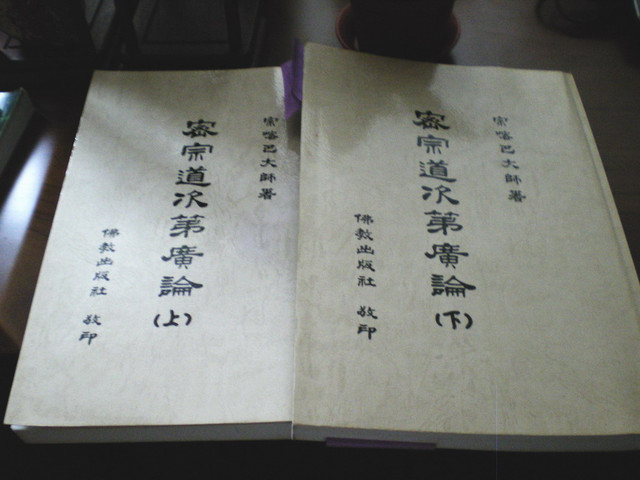 宗喀巴大師著
密宗道次第廣論(上)
佛教出版社 敬印
宗喀巴大師著
密宗道次第廣論(下)
佛教出版社 敬印